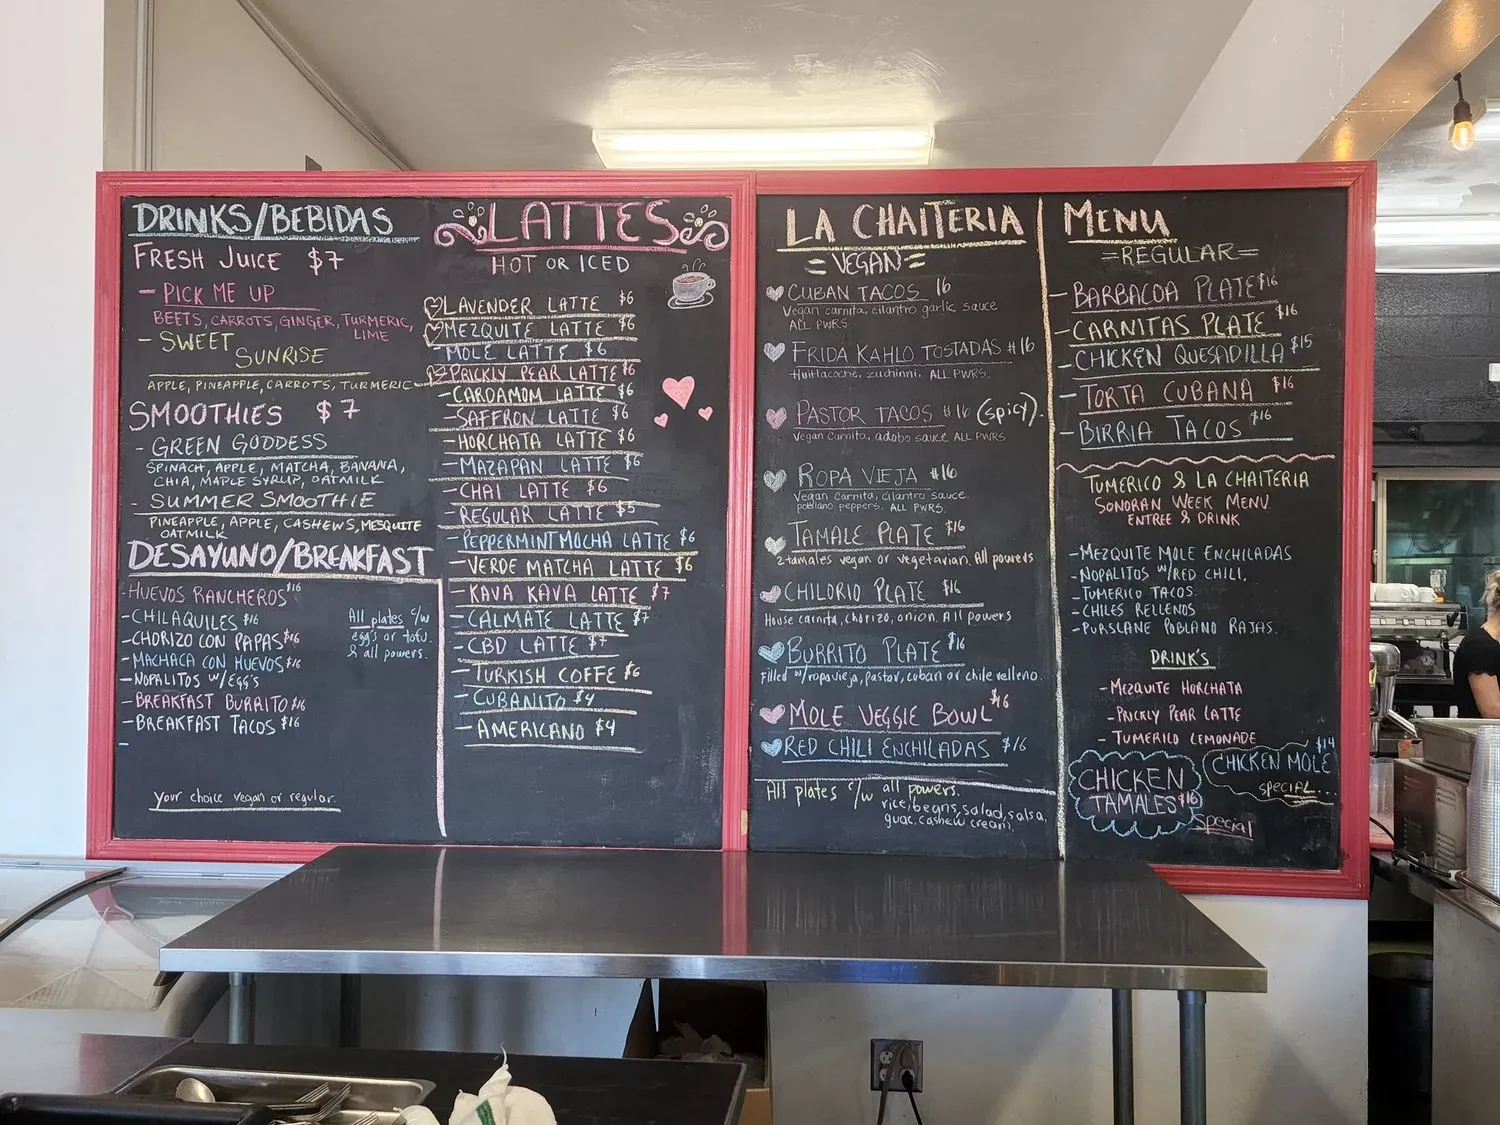 DRINKS/BEBIDAS
FRESH JUICE $7
- PICK ME UP
BEETS, CARROTS, GINGER, TURMERIC,
LIME
- SWEET
SUNRISE
APPLE, PINEAPPLE, CARROTS, TURMERIC
SMOOTHIES $7
- GREEN GODDESS
SPINACH, APPLE, MATCHA, BANANA,
CHIA, MAPLE SYRUP, OATMILK
- SUMMER SMOOTHIE
PINEAPPLE, APPLE, CASHEWS, MESQUITE
OATMILK
DESAYUNO/BREAKFAST
-HUEVOS RANCHEROS $16
-CHILAQUILES $16
-CHORIZO CON PAPAS $16
-MACHACA CON HUEVOS $16
-NOPALITOS W/EGG'S
-BREAKFAST BURRITO $16
-BREAKFAST TACOS $16
-
All plates c/w
egg's or tofu.
& all powers.
Your choice vegan or regular.
LATTES
HOT OR ICED
LAVENDER LATTE $6
MEZQUITE LATTE $6
-MOLE LATTE $6
PRICKLY PEAR LATTE $6
-CARDAMOM LATTE $6
-SAFFRON LATTE $6
-HORCHATA LATTE $6
-MAZAPAN LATTE $6
-CHAI LATTE $6
-REGULAR LATTE $5
-PEPPERMINT MOCHA LATTE $6
-VERDE MATCHA LATTE $6
-KAVA KAVA LATTE $7
-CALMATE LATTE $7
-CBD LATTE $7
-TURKISH COFFE $6
-CUBANITO $4
-AMERICANO $4
LA CHAITERIA
=VEGAN=
CUBAN TACOS 16
Vegan carnita, cilantro garlic sauce
ALL PWRS.
FRIDA KAHLO TOSTADAS #16
Huitlacoche, zuchinni. ALL PWRS.
PASTOR TACOS #16 (spicy).
Vegan Carnita, adobo sauce ALL PWRS
ROPA VIEJA #16
Vegan Carnita, cilantro sauce.
poblano peppers. ALL PWRS.
TAMALE PLATE $16
2 tamales vegan or vegetarian. All powers
CHILORIO PLATE $16
House carnita, chorizo, onion. All powers
BURRITO PLATE $16
Filled w/ropa vieja, pastor, cuban or chile relleno.
MOLE VEGGIE BOWL $16
RED CHILI ENCHILADAS $16
All plates c/w all powers.
rice, beans, salad, salsa,
guac, cashew cream.
MENU
=REGULAR=
-BARBACOA PLATE $16
-CARNITAS PLATE $16
-CHICKEN QUESADILLA $15
-TORTA CUBANA $16
-BIRRIA TACOS $16
TUMERICO & LA CHAITERIA
SONORAN WEEK MENU
ENTREE & DRINK
-MEZQUITE MOLE ENCHILADAS
-NOPALITOS W/RED CHILI.
-TUMERICO TACOS
-CHILES RELLENOS
-PURSLANE POBLANO RAJAS.
DRINK'S
- MEZQUITE HORCHATA
- PRICKLY PEAR LATTE
- TUMERICO LEMONADE
CHICKEN
TAMALES $16
special
CHICKEN MOLE $14
SPECIAL...